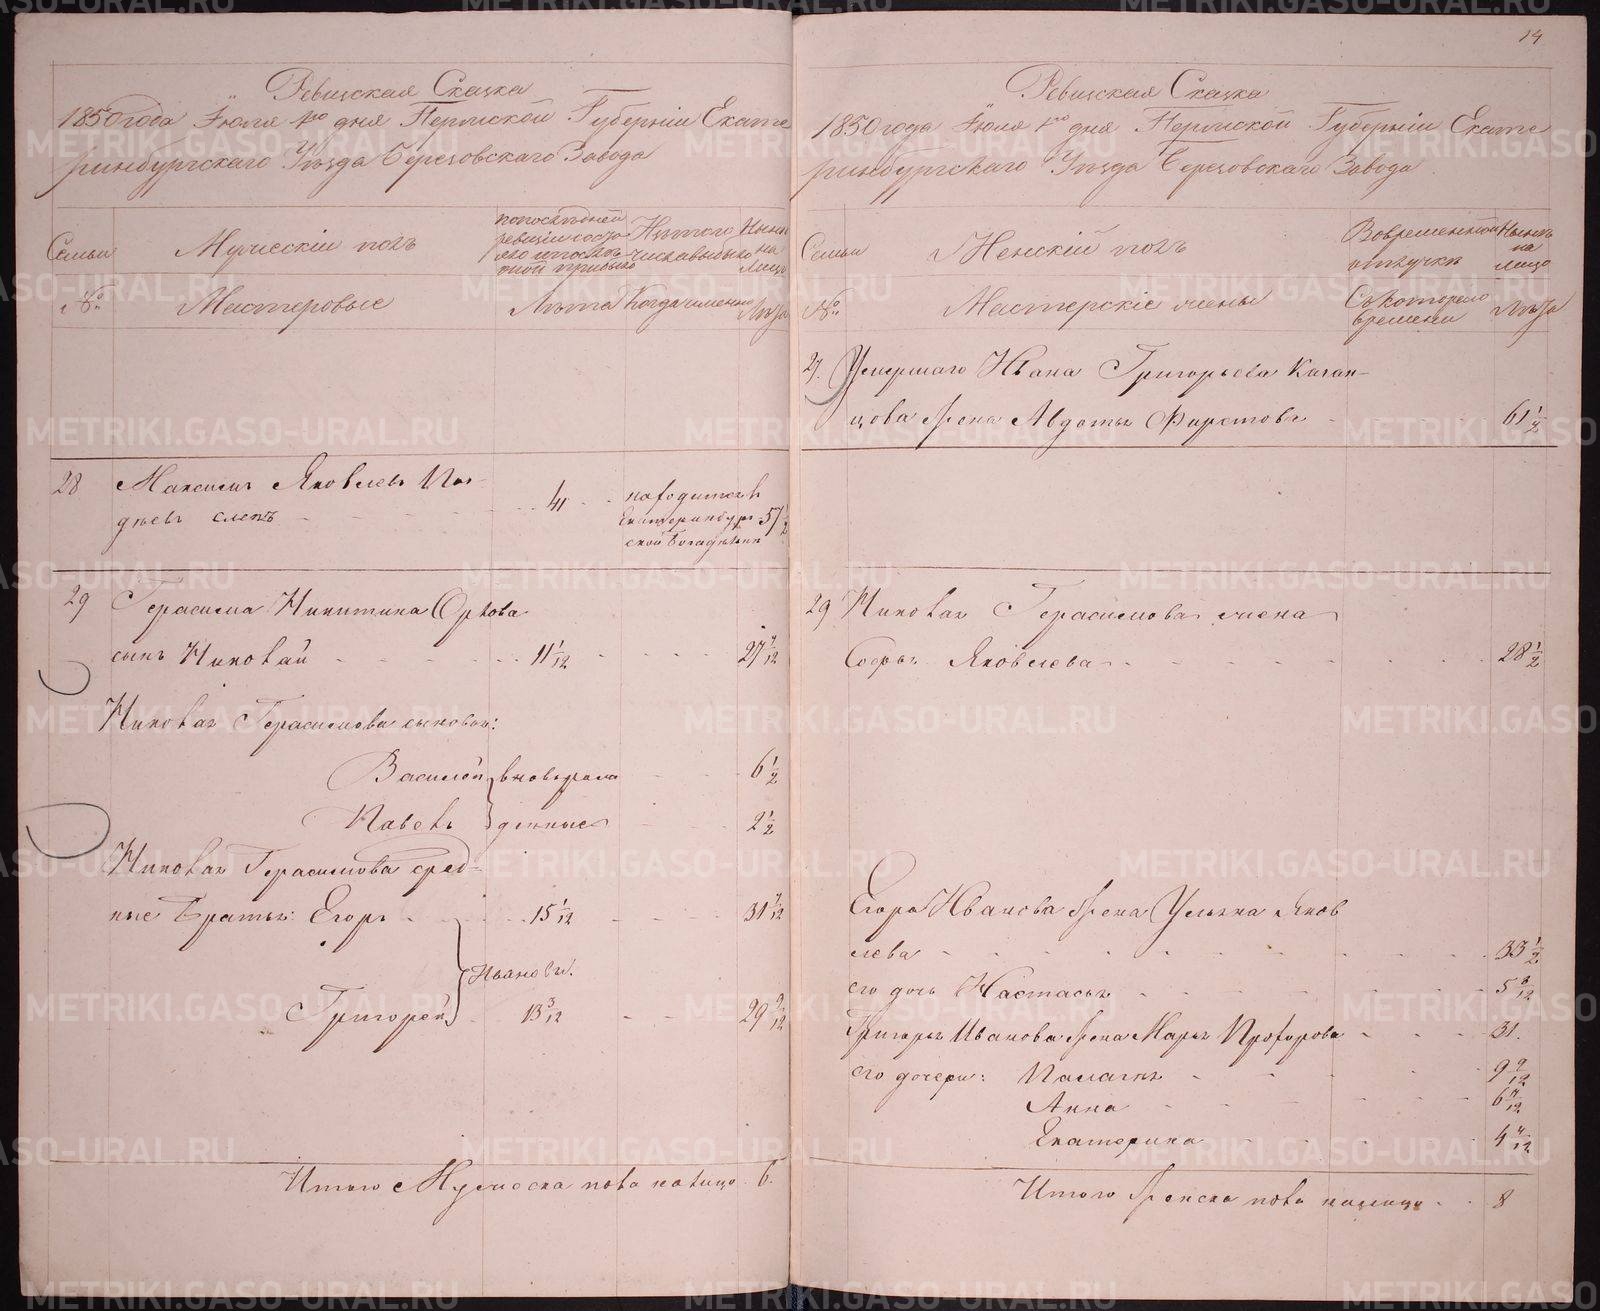 Ревизская Сказка
1850 года Іюля 1го дня Пермской Губерніи Екате
ринбургскаго Уѣзда Березовскаго Завода
Семьи
Мужескій полъ
по послѣдней
ревизіи состо
яло и послѣ
того прибыло
Изъ того
числа выбыло
Нынѣ
на
лицо
№
Мастеровые
Лѣта
Когда именно
Лѣта
28 Максимъ Яковлевъ Поз-
днѣевъ слепъ 41 находится въ
Екатеринбург-
ской Богадѣльни 57 1/2
29 Герасима Никитина Орлова
сынъ Николай 11 1/12 27 7/12
Николая Герасимова сыновья:
Василей вновь рож 6 1/2
Павелъ денные 2 1/2
Николая Герасимова сред-
ные братья: Егоръ 15 1/12 31 7/12
Ивановы.
Григорей 13 3/12 29 9/12
Итого Мужеска пола налицо 6.
14
Ревизская Сказка
1850 года Іюля 1го дня Пермской Губерніи Екате
ринбургскаго Уѣзда Березовскаго Завода
Семьи
Женскій полъ
Во временной
отлучкѣ
Нынѣ
на
лицо
№
Мастерскіе жены
Съ котораго
времени
Лѣта
27. Умершаго Ивана Григорьева Казан-
цова жена Авдотья 61 1/2
29 Николая Герасимова жена
Софья Яковлева 28 1/2
Егора Иванова жена Ульяна Яков
лева 33 1/2
его дочь Настасья 5 8/12
Григорья Иванова жена Марья Прохорова 31.
его дочери: Палагия 9 9/12
Анна 6 4/12
Екатерина 4 4/12
Итого Женска пола налицо 8
METRIKI.GASO-URAL.RU